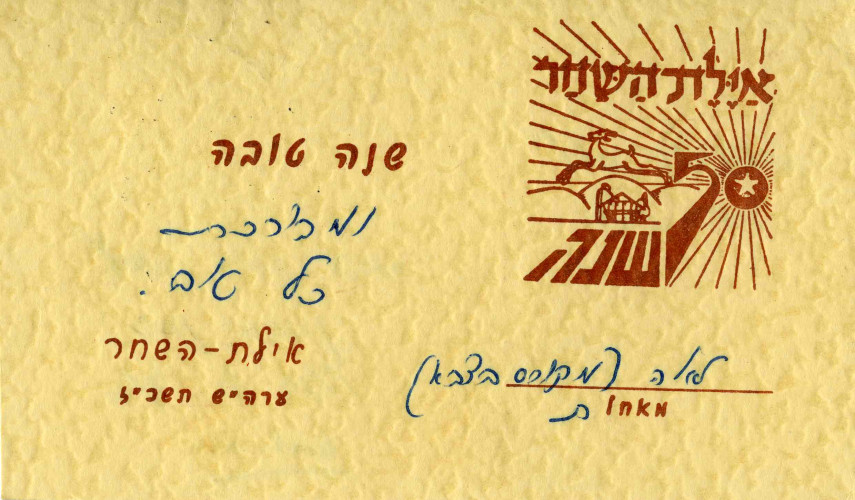 אַיֶּלֶת הַשַּׁחַר
50
שנה
שנה טובה
ומבורכת
כל טוב.
אילת-השחר
ערה״ש תשכ״ז
לאה (מקורס בצבא)
מאת